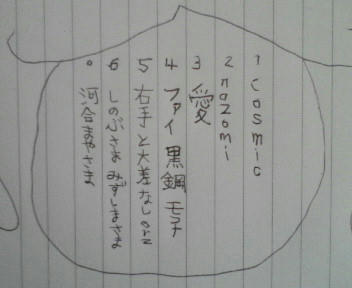 1 cosmic
2 nozomi
3 愛
4 ファイ 黒鋼
5 右手と大差なしorz
6 しのぶさま みずしまさま
。 河合まやさま